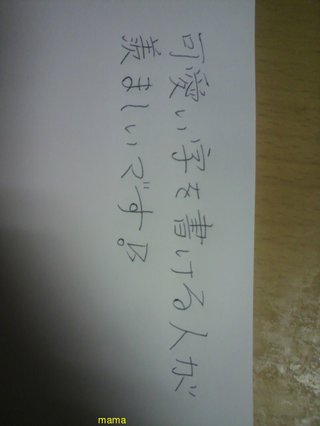 可愛い字を書ける人が
羨ましいです
mama